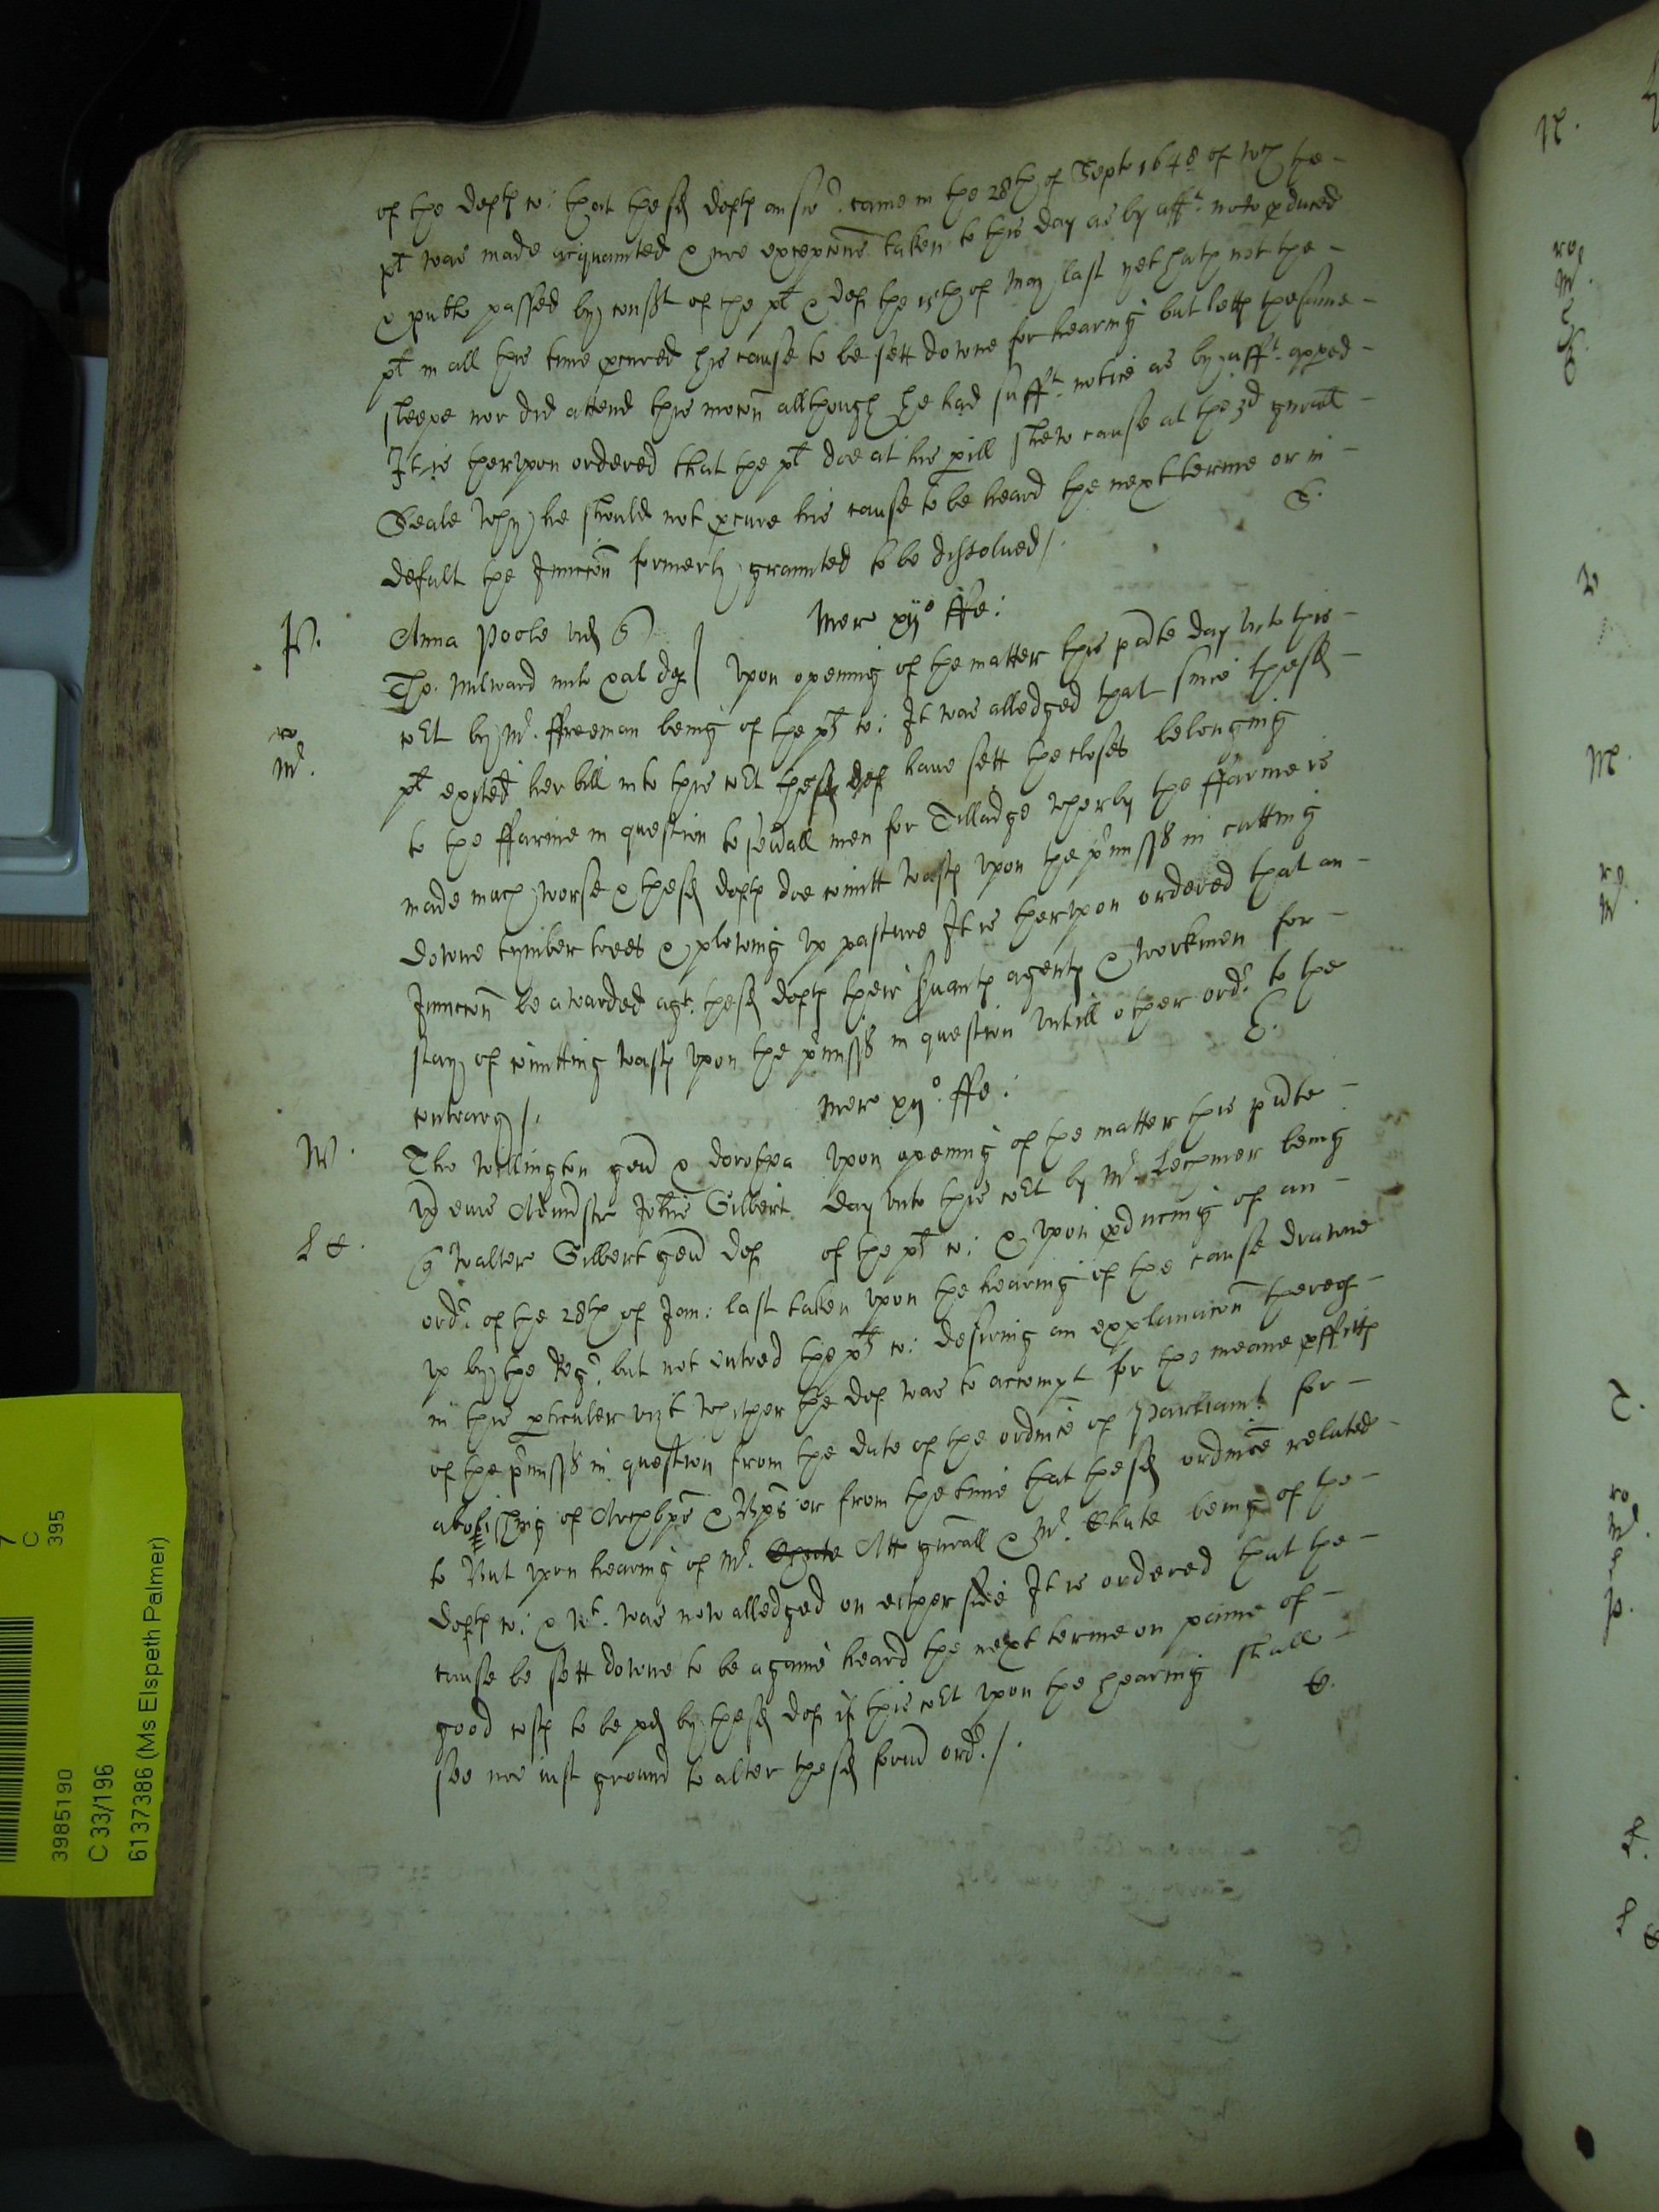 of the defts &c: that the sd defts answr. came in the 28th of Sept 1648 of wch the -
plt was made acquainted & noe excepcons taken to this day as by afft. now pduced
& publ passed by consent of the plt & deft the 15th of May last yet hath not the -
plt in all this time pcured his cause to be sett downe for hearing but letts the same -
sleepe nor did attend this mocon allthough he had sufft. notice as by afft. apped -
It is therupon ordered that the plt doe at his pill shew cause at the 3d gnrall -
Seale why he should not pcure his cause to be heard the next terme or in -
default the Junccon formerly graunted to be dissolued /.
S.
Merc xiio ffe:
P.
Anna Poole vid q
Tho. Milward mil & al deft
Upon opening of the matter this pnte day vnto this -
co
Mr.
cort by Mr. ffreeman being of the plts co: It was alledged that since the sd -
plt exited her bill into this cort the sd deft haue sett the closes belonging
to the ffarme in question to seuall men for Tilladge wherby the ffarme is
made much worse & the sd defts doe comitt wasts vpon the pmisss in cutting
downe tymber trees & plowing vp pasture It is therupon ordered that an -
Junccon be awarded agt. the sd defts their servants agents & workmen for -
stay of comitting wasts vpon the pmisss in question vntill other ordr to the
contrary /.
E.
Merc xiio. ffe:
W.
Tho Willington gen & Dorothea
vx eius Admistr Johis Gilbert
q Walter Gilbert gen deft
Upon opening of the matter this pnte -
day vnto this cort by Mr. Lechmer being
of the plts co: & vpon pducing of an -
Le.
ordr. of the 28th of Jan: last taken vpon the hearing of the cause drawne
vp by the Regr. but not entred the plts co: desiring an explanacon therof -
in this pticuler vizt whither the deft was to accompt for the meane pffitts
of the pmisss in question from the date of the ordnce of Parliamt. for -
abolishing of Archbps & Bps or from the time that the sd ordnce related -
to But vpon hearing of Mr. Chute Att gnrall & Mr. Chute being of the -
defts co: & wt. was now alledged on either side It is ordered that the -
cause be sett downe to be againe heard the next terme on paine of -
good costs to be pd by the sd deft if this cort vpon the hearing shall -
see noe iust ground to alter the sd form ordr. /.
E.
7
C
395
3985190
C 33/196
6137386 (Ms Elspeth Palmer)